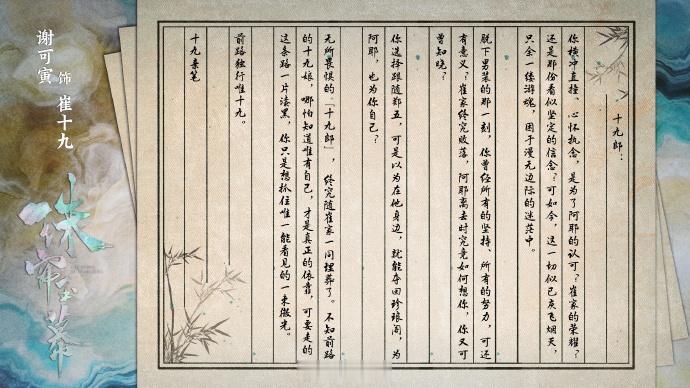 谢可寅
饰
崔十九
珠帘玉幕
十九郎：
你横冲直撞、心怀执念，是为了阿耶的认可？崔家的荣耀？
还是那份看似坚定的信念？可如今，这一切似已灰飞烟灭，
只余一缕游魂，困于漫无边际的迷茫中。
脱下男装的那一刻，你曾经所有的坚持、所有的努力，可还
有意义？崔家终究败落，阿耶离去时究竟如何想你，你又可
曾知晓？
你选择跟随郑五，可是以为在他身边，就能夺回珍琅阁，为
阿耶，也为你自己？
无所畏惧的「十九郎」，终究随崔家一同埋葬了。不知前路
的十九娘，哪怕知道唯有自己，才是真正的依靠，可要走的
这条路一片漆黑，你只是想抓住唯一能看见的一束微光。
前路独行唯十九。
十九亲笔